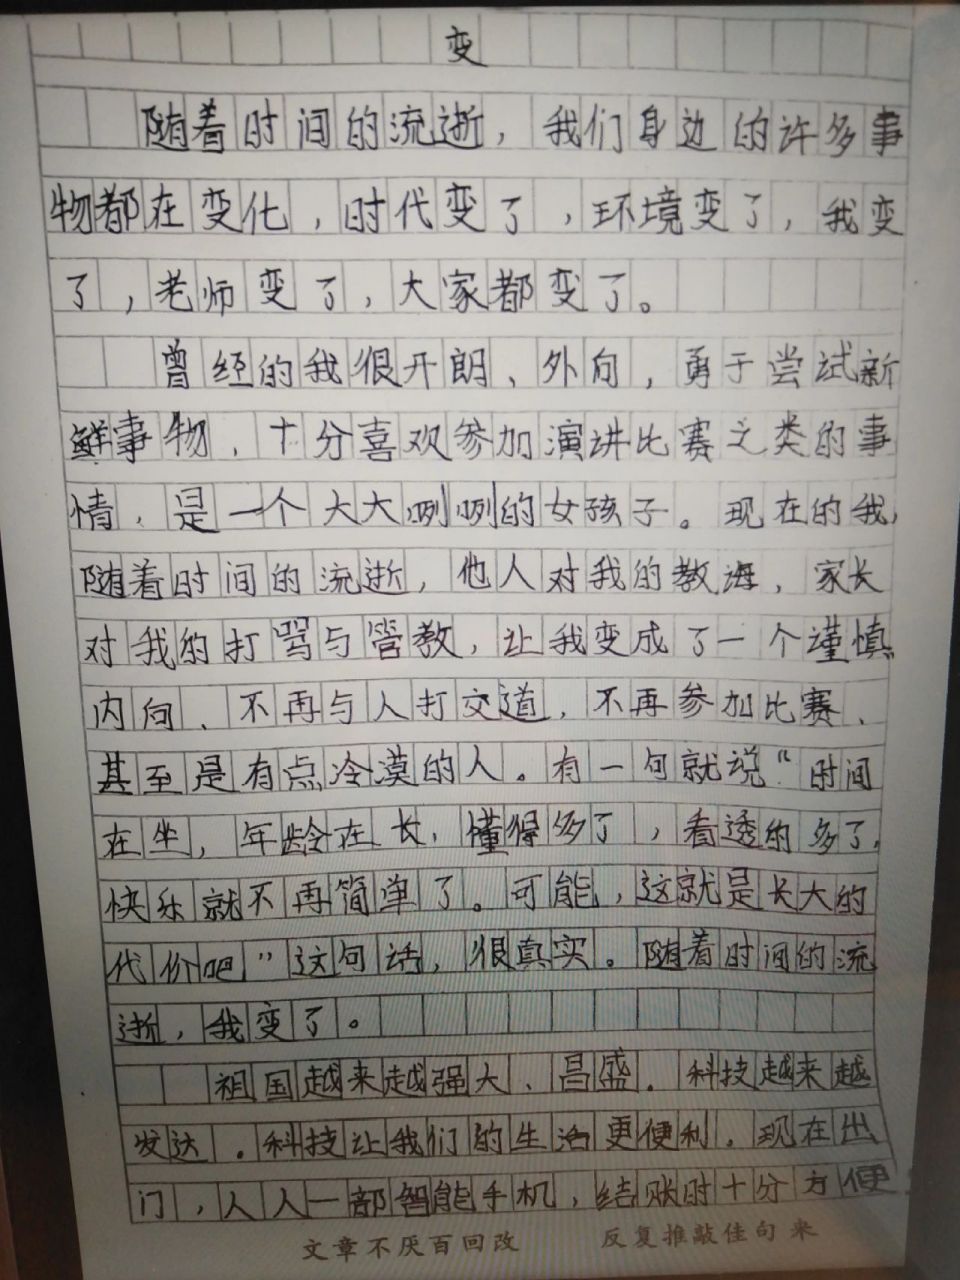 变
随着时间的流逝，我们身边的许多事
物都在变化，时代变了，环境变了，我变
了，老师变了，大家都变了。
曾经的我很开朗、外向，勇于尝试新
鲜事物，十分喜欢参加演讲比赛之类的事
情，是一个大大咧咧的女孩子。现在的我，
随着时间的流逝，他人对我的教诲，家长
对我的打骂与管教，让我变成了一个谨慎
内向、不再与人打交道，不再参加比赛、
甚至是有点冷漠的人。有一句就说“时间
在坐，年龄在长，懂得多了，看透的多了，
快乐就不再简单了。可能，这就是长大的
代价吧”这句话，很真实。随着时间的流
逝，我变了。
祖国越来越强大、昌盛。科技越来越
发达。科技让我们的生活更便利。现在出
门，人人一部智能手机，结账时十分方便
文章不厌百回改 反复推敲佳句来